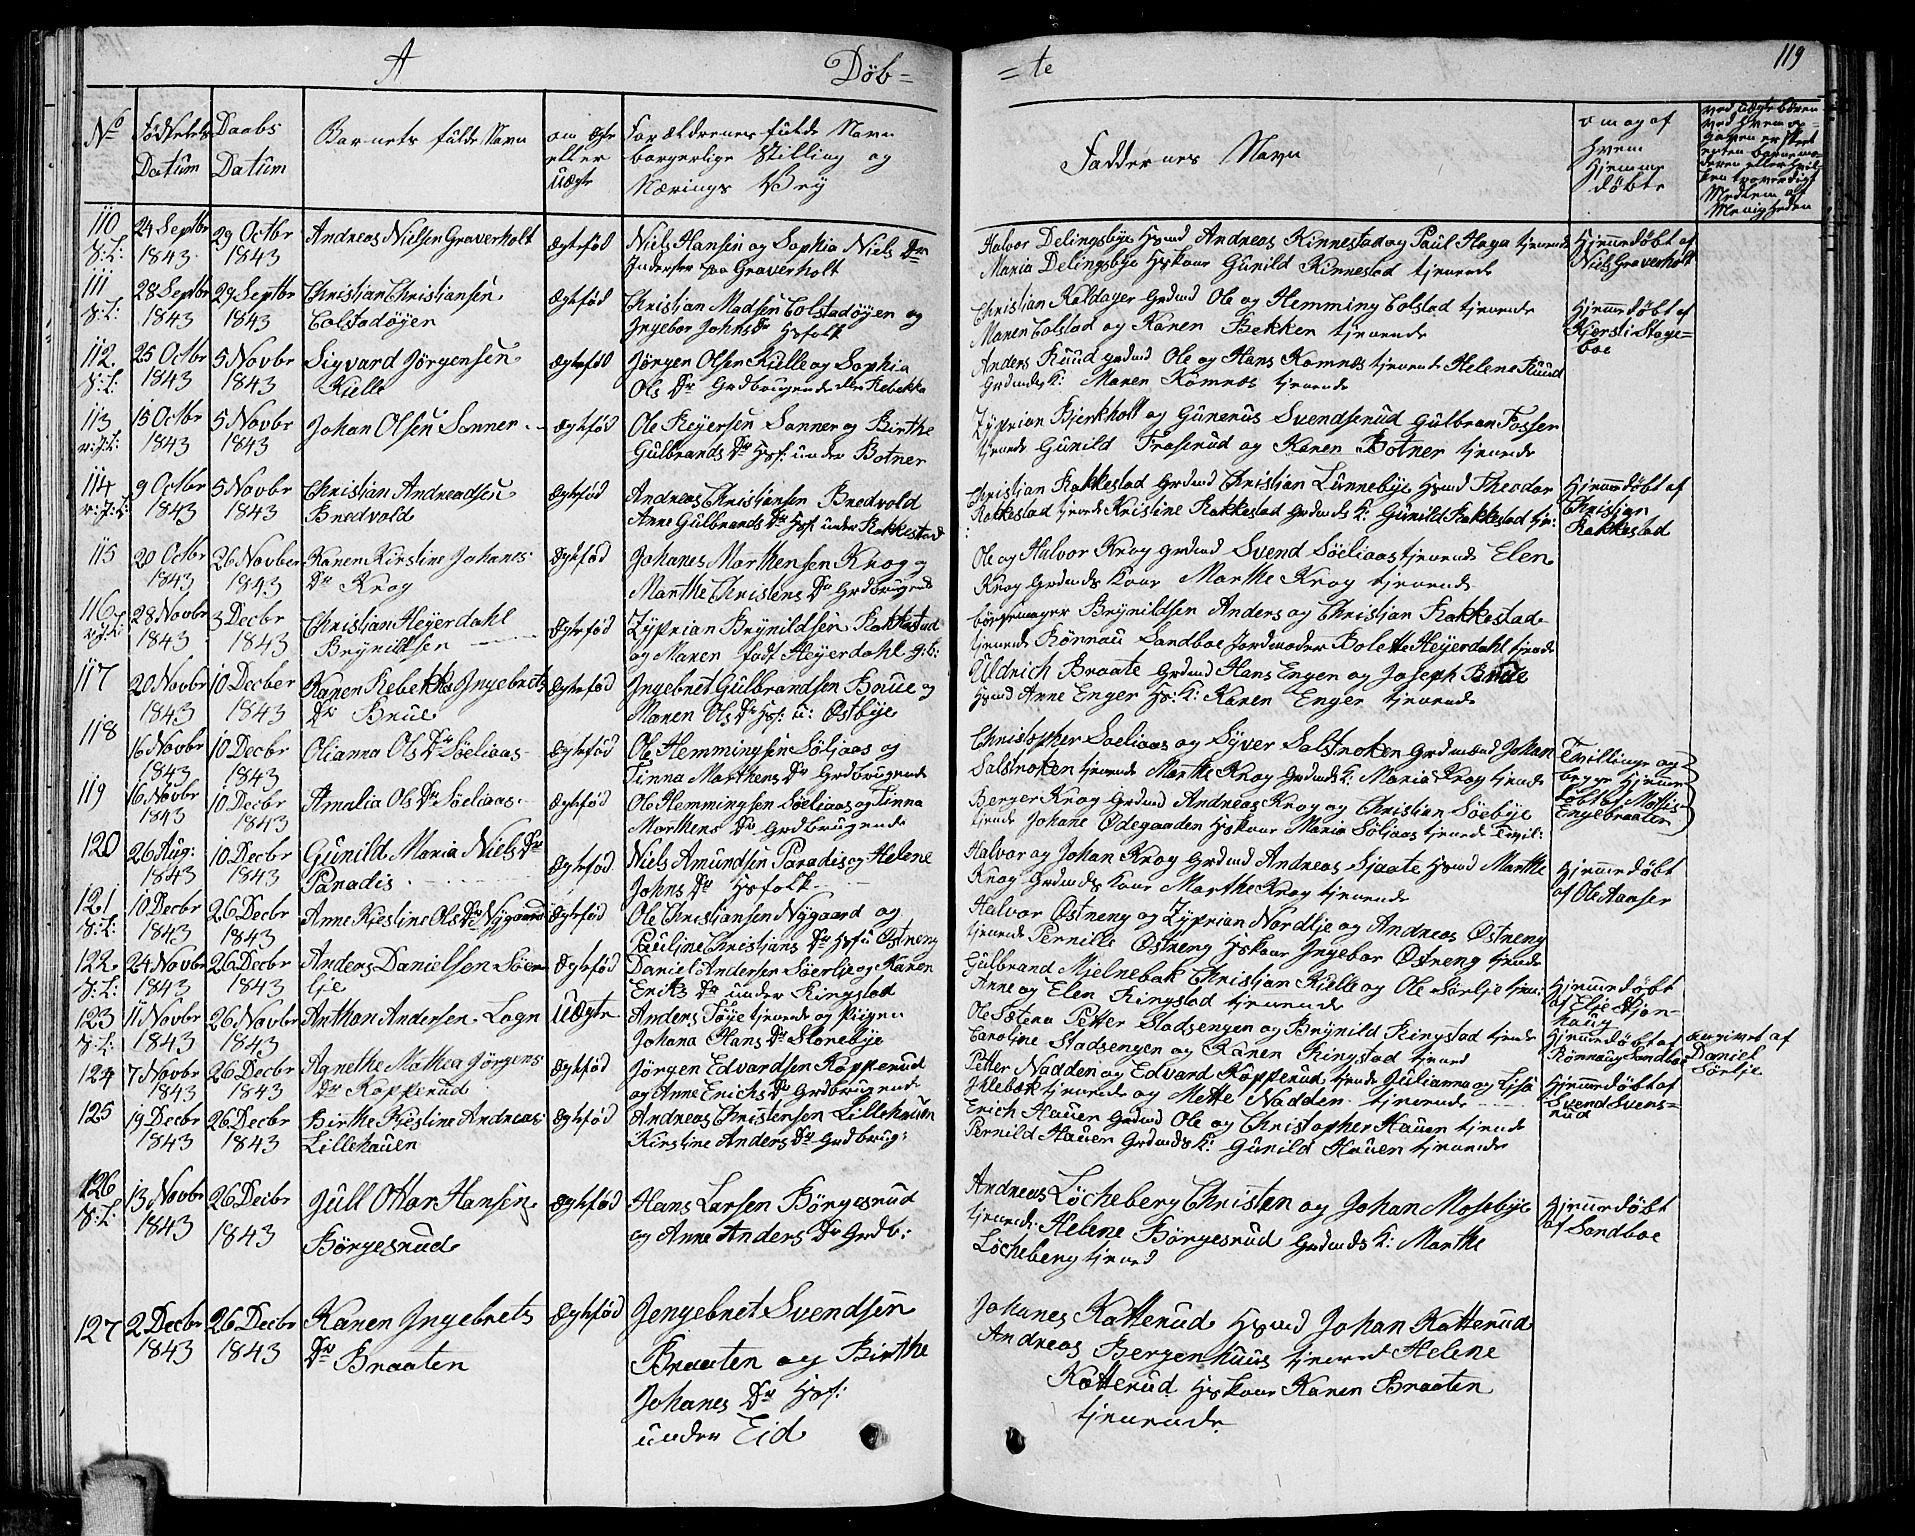 A
Döb=
=te
119
No
Födselets Datum
Daabs Datum
Barnets fulde Navn
om ægte eller uægte
Forældrenes fulde Navn borgerlige Stilling og Nærings Vey
Faddernes Navn
om og af hvem hjemme döbte
110
24 Septbr 1843
29 Octbr 1843
Andreas Nielsen Graverholt
ægtefød
Niels Hansen og Sophia Niels Dr
Inderster paa Graverholt
Halvor Delingsbye Hsmd Andreas Kinnestad og Paul Haga tjenende
Maria Delingsbye Hskone Gunild Kinnestad tjenende
Hjemmedøbt af
Niels Graverholt
111
28 Septbr 1843
29 Septbr 1843
Christian Christiansen
Colstadöyen
ægtefød
Christian Madsen Colstadöyen og
Ingebor Johns Dr Hsfolk
Christian Kaldager Grdmd Ole og Hemming Colstad tjenende
Maren Colstad og Karen Bekken tjenende
Hjemmedøbt af
Kjersti Stage=
boe
112
25 Octbr 1843
5 Novbr 1843
Sigvard Jörgensen
Kielle
ægtefød
Jörgen Olsen Kielle og Sophia
Ols Dr Grdbrugende
Anders Ruud Grdmd Ole og Hans Komnes tjenende Helene Ruud
Grdmds K: Maren Komnes tjenende
113
15 Octbr 1843
5 Novbr 1843
Johan Olsen Sonner
ægtefød
Ole Reyersen Sonner og Birthe
Gulbrands Dr Hsf: under Botner
Zyprian Bjerkholt og Gunerius Svendserud Gulbran Fosser
tjenende Gunild Fraserud og Karen Botner tjenende
114
9 Octbr 1843
5 Novbr 1843
Christian Andreadsen
Bredvold
ægtefød
Andreas Christiansen Bredvold
Anne Gulbrands Dr Hsf under Rakkestad
Christian Rakkestad Grdmd Christian Lunnebye Hsmd Theodor
Rakkestad tjende Kristine Rakkestad Grdmds K: Gunild Rakkestad tje:
Hjemmedøbt af
Christian
Rakkestad
115
20 Octbr 1843
26 Novber 1843
Karen Kirstine Johanes
Dr Krog
ægtefød
Johanes Marthensen Krog og
Marthe Christens Dr Grdbrugende
Ole og Halvor Krog Grdmd Svend Söeliaas tjenende Elen
Krog Grdmds Kone Marthe Krog tjenende
116
28 Novbr 1843
3 Decbr 1843
Christian Heyerdahl
Brynildsen
ægtefød
Zyprian Brynildsen Rakkestad
og Maren født Heyerdahl g:b:
Brynildsen Anders og Christian Rakkestad
tjenende Rönnau Sandboe Jordmoder Bolette Heyerdahl tjende
117
20 Novbr 1843
10 Decber 1843
Karen Rebekka Ingebrets
Dr Brue
ægtefød
Ingebret Gulbrandsen Brue og
Maren Ols Dr Hsf: u: Østbye
Uldrich Braate Grdmd Hans Engen og Joseph Brue
Hsmd Anne Enger Hs: K: Karen Enger tjenende
118
16 Novbr 1843
10 Decbr 1843
Olianna Ols Dr Söeliaas
ægtefød
Ole Hemmingsen Söljaas og
Tinna Marthens Dr Grdbrugende
Christopher Soeliaas og Syver Salsnoken Grdmænd Johan
Salsnoken tjenende Marthe Krog Grdmds K: Maria Krog tjende
Tvillinge og
begge hjemme
døbt af Mattis
Engebraaten
119
16 Novbr 1843
10 Decbr 1843
Amalia Ols Dr Söeliaas
ægtefød
Ole Hemmingsen Söeliaas og Tinna
Marthens Dr Grdbrugende
Berger Krog Grdmd Andreas Krog og Christian Söebye
tjende Johane Ødegaarden Hskone Maria Söljaas tjenede Tvil:
120
26 Aug: 1843
10 Decbr 1843
Gunild Maria Niels Dr
Paradis
ægtefød
Niels Amundsen Paradis og Helene
Johns Dr Hsfolk
Halvor og Johan Krog Grdmd Andreas Sjaate Hsmd Marthe
Krog Grdmds Kone Marthe Krog tjenende
Hjemmedøbt
af Ole Aanser
121
10 Decbr 1843
26 Decbr 1843
Anne Kiestine Ols Dr Nygaard
ægtefød
Ole Christiansen Nygaard og
Pauline Christians Dr Hsf u Østneng
Halvor Østneng og Zyprian Nordlje og Andreas Østneng
tjenende Pernille Østneng Hskone Ingebor Østneng tjende
122
24 Novbr 1843
26 Decbr 1843
Anders Danielsen Söer
lje
ægtefød
Daniel Andersen Söerlje og Karen
Eriks Dr under Ringstad
Gulbrand Mjelnebak Christian Kielle og Ole Sörlje tjen:
Anne og Elen Ringstad tjenende
Hjemmedøbt
af Else Stjon=
haug
123
11 Novbr 1843
26 Novbr 1843
Anthon Andersen Logn
Uægte
Anders Töye tjenende og Pigen
Johana Hans Dr Storebye
Ole Sætena Petter Stadsengen og Brynild Ringstad tjende
Caroline Stadsengen og Karen Ringstad tjened
Hjemmedøbt af
Rönnaug Sandboe
angivet af
Daniel
Sörlje
124
7 Novbr 1843
26 Decbr 1843
Agnethe Mathea Jörgens
Dr Kopperud
ægtefød
Jörgen Edvardsen Kopperud
og Anne Erichs Dr Grdbrugende
Petter Nadden og Edvard Kopperud tjende Julianna og Lisa
Hellebæk tjenende og Mette Nadden tjenende
Hjemmedøbt af
Svend Svens=
rud
125
19 Decbr 1843
26 Decbr 1843
Birthe Kjestine Andreas
Lillehauen
ægtefød
Andreas Christensen Lillehauen
Kirstine Anders Dr Grdbrug:
Erich Hauer Grdmd Ole og Christopher Hauen tjende
Pernild Hauer Grdmds K: Gunild Hauen tjenende
126
13 Novbr 1843
26 Decbr 1843
Jull Ottar Hansen
Börgesrud
ægtefød
Hans Larsen Börgesrud
og Anne Anders Dr Grdb:
Andreas Löcheberg Christen og Johan Mosebye
tjenende Helene Börgesrud Grdmds K: Marthe
Löcheberg tjened
Hjemmedøbt
af Sandboe
127
2 Decbr 1843
26 Decbr 1843
Karen Ingebrets
Dr Braaten
ægtefød
Jengebret Svendsen
Braaten og Birthe
Johanes Dr Hsf:
under Eid
Johanes Katterud Hsmd Johan Katterud
Andreas Bergenhuus tjened Helene
Katterud Hskone Karen Braaten
tjenende